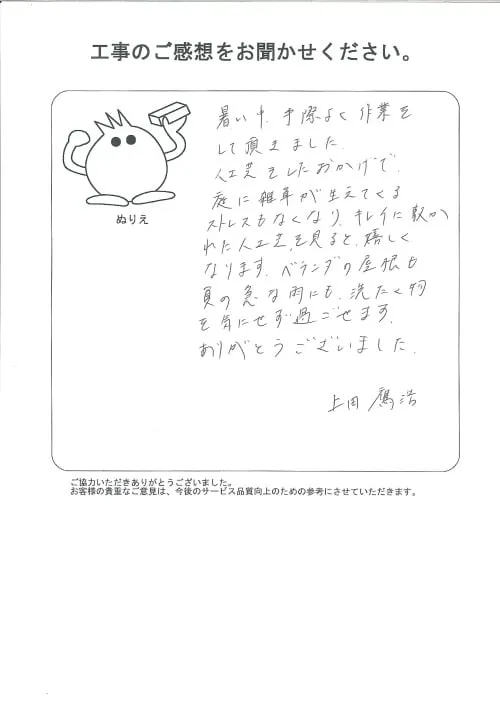 工事のご感想をお聞かせください。
ぬりえ
暑い中、手際よく作業を
して頂きました。
人工芝をしたおかげで、
庭に雑草が生えてくる
ストレスもなくなり、キレイに敷か
れた人工芝を見ると、嬉しく
なります。ベランダの屋根も
夏の急な雨にも、洗たく物
を気にせず過ごせます。
ありがとうございました。
上田
ご協力いただきありがとうございました。
お客様の貴重なご意見は、今後のサービス品質向上のための参考にさせていただきます。